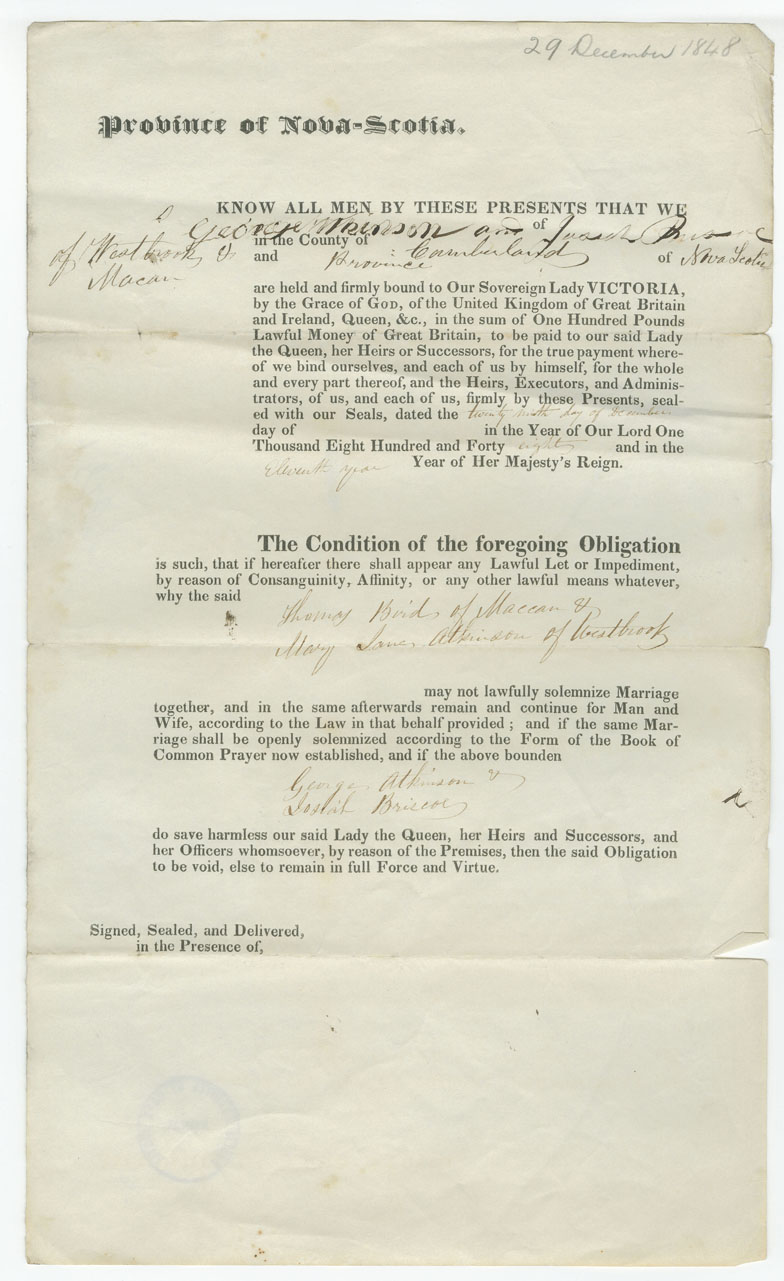 29 December 1848
Province of Nova-Scotia.
KNOW ALL MEN BY THESE PRESENTS THAT WE
George Atkinson and of Joseph Briscoe
of Westbrook & in the County of Cumberland
Macan and Province of Nova Scotia
are held and firmly bound to Our Sovereign Lady VICTORIA,
by the Grace of GOD, of the United Kingdom of Great Britain
and Ireland, Queen, &c., in the sum of One Hundred Pounds
Lawful Money of Great Britain, to be paid to our said Lady
the Queen, her Heirs or Successors, for the true payment where-
of we bind ourselves, and each of us by himself, for the whole
and every part thereof, and the Heirs, Executors, and Adminis-
trators, of us, and each of us, firmly by these Presents, seal-
ed with our Seals, dated the twenty ninth day of December
day of in the Year of Our Lord One
Thousand Eight Hundred and Forty eight and in the
Eleventh year Year of Her Majesty's Reign.
The Condition of the foregoing Obligation
is such, that if hereafter there shall appear any Lawful Let or Impediment,
by reason of Consanguinity, Affinity, or any other lawful means whatever,
why the said
Thomas Boid of Maccan &
Mary Jane Atkinson of Westbrook
may not lawfully solemnize Marriage
together, and in the same afterwards remain and continue for Man and
Wife, according to the Law in that behalf provided ; and if the same Mar-
riage shall be openly solemnized according to the Form of the Book of
Common Prayer now established, and if the above bounden
George Atkinson &
Briscoe
do save harmless our said Lady the Queen, her Heirs and Successors, and
her Officers whomsoever, by reason of the Premises, then the said Obligation
to be void, else to remain in full Force and Virtue.
Signed, Sealed, and Delivered,
in the Presence of,